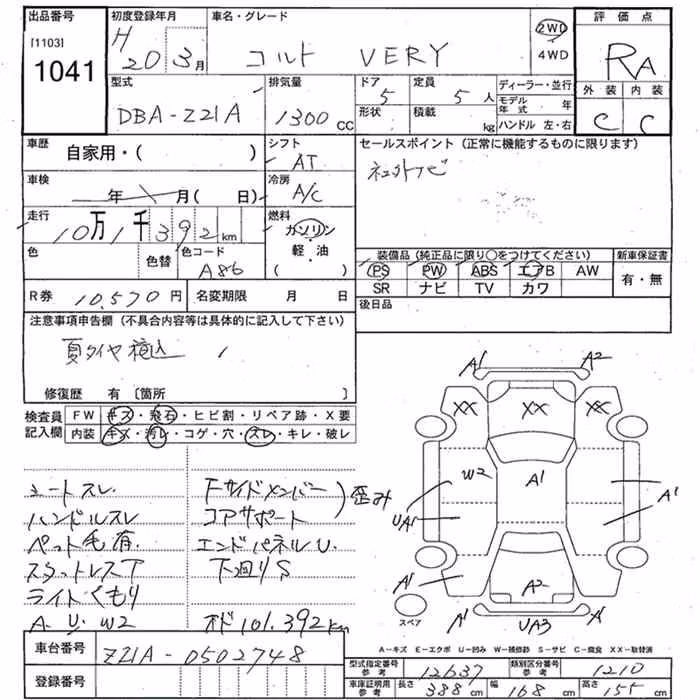 出品番号
[1103]
1041
初度登録年月
H 20 3月
車名・グレード
コルト VERY
2WD
・
4WD
評価点
RA
外装 内装
C C
型式
DBA-Z21A
排気量
1300 CC
ドア
5
形状
定員
5人
積載
kg
ディーラー・並行
モデル年式 年
ハンドル 左・右
車歴
自家用・( )
シフト
AT
セールスポイント (正常に機能するものに限ります)
社外ナビ
車検
年 月( 日)
冷房
A/C
走行
10万1千392km
燃料
ガソリン
・
軽・油
( )
色
色替
色コード
A86
装備品(純正品に限り○をつけてください)
新車保証書
PS PW ABS エアB AW
SR ナビ TV カワ
有・無
R券 10,570円
名変期限 月 日
後日品
注意事項申告欄 (不具合内容等は具体的に記入して下さい)
夏タイヤ積込
修復歴 有 [箇所 ]
検査員記入欄
FW キズ・飛石・ヒビ割・リペア跡・X要
内装 キズ・汚レ・コゲ・穴・スレ・キレ・破レ
シートスレ
ハンドルスレ
ペット毛有
スタットレスT
ライトくもり
A. U. W2
Fサイドメンバー
コアサポート
歪み
エンドパネルU.
下廻りS
オド101.392km
A1 A2
XX XX XX
W2 A1
UA1 A1
A1 A2
A1 UA3 A
スペア
A-キズ E-エクボ U-凹み W-補修跡 S-サビ C-腐食 XX-取替済
車台番号
Z21A-0502748
登録番号
型式指定番号 参考 12637
類別区分番号 参考 1210
車庫証明用 参考 長さ 388cm 幅 168cm 高さ 155cm